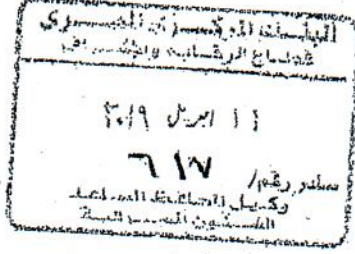 البنك المركزي المصري
قطاع الرقابة والإشراف
١١ ابريل ٢٠١٩
صادر رقم/ ٦١٧
وكيل المحافظ المساعد